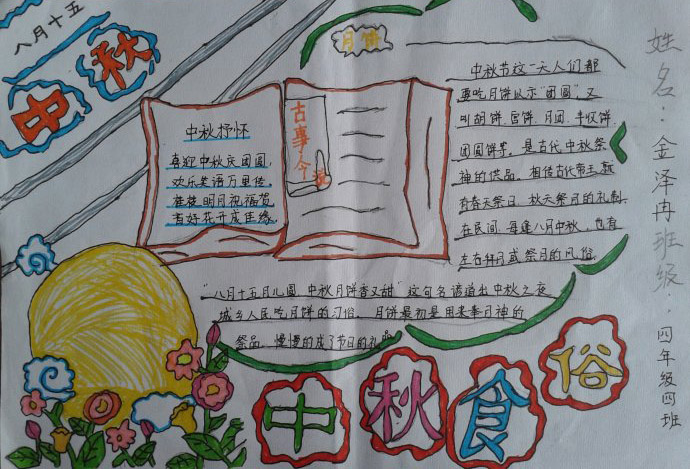 八月十五
中秋
月饼
中秋抒怀
喜迎中秋庆团圆,
欢乐笑语万里传,
明月祝福
古事今
中秋节这一天人们都
要吃月饼以示“团圆”又
叫胡饼、宫饼、月团、丰收饼
团圆饼等。是古代中秋祭
神的供品。相传古代帝王就
有春天祭日、秋天祭月的礼制
在民间,每逢八月中秋,也有
左右拜月或祭月的风俗
“八月十五月儿圆,中秋月饼香又甜”这句名谚道出中秋之夜
城乡人民吃月饼的习俗。月饼最初是用来奉月神的
祭品,慢慢的成了节日的礼品
中秋食俗
姓名:金泽冉班级:四年级四班